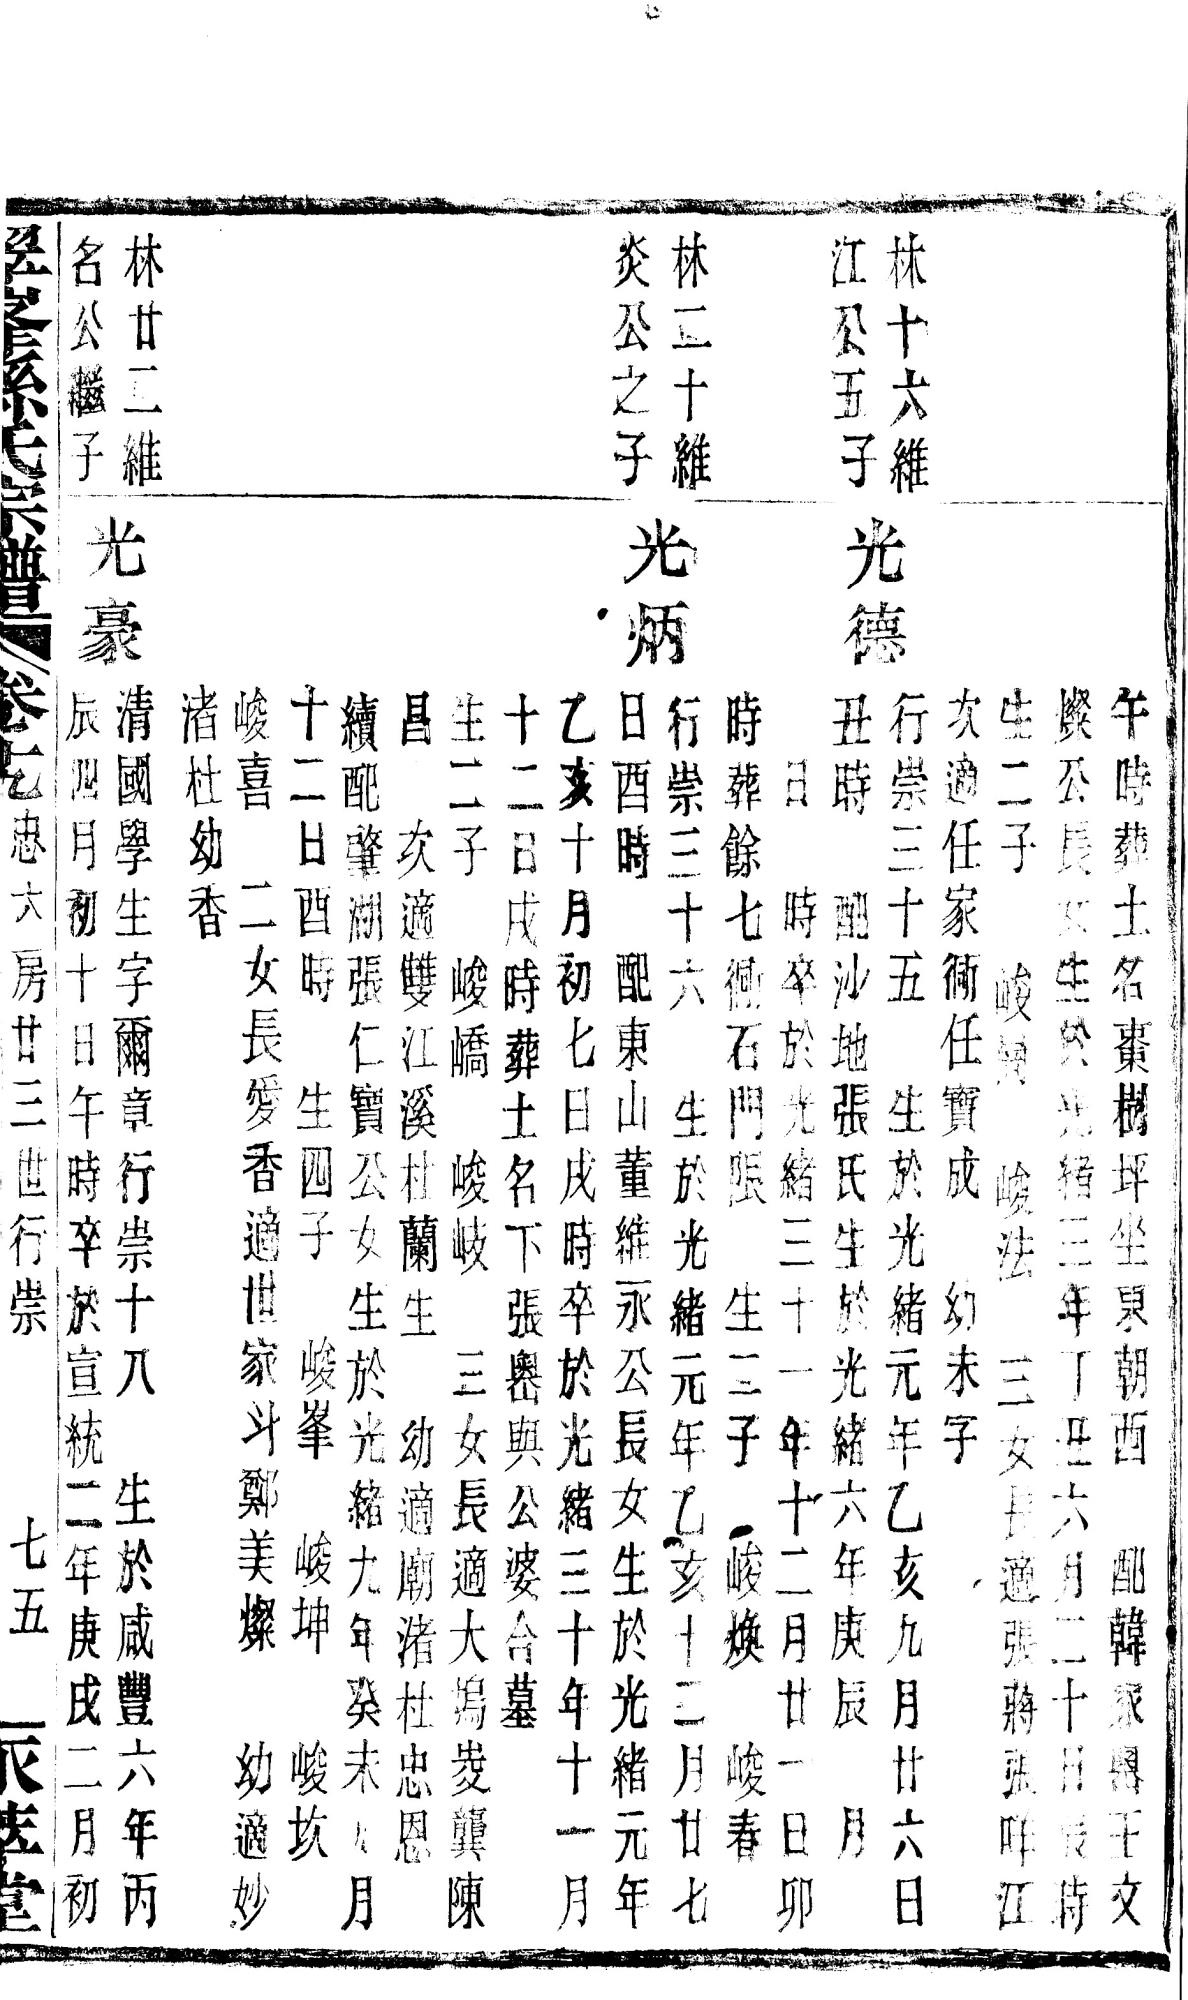 午時葬土名棗樹坪坐東朝西　配韓家嶴王文
燦公長女生於光緒三年丁丑六月二十日辰時
生二子　峻　　峻法　三女長適張蔣張咩江
次適任家衕任寶成　幼未字
林十六維
江公五子
光德
行崇三十五　生於光緒元年乙亥九月廿六日
丑時　配沙地張氏生於光緒六年庚辰　月
日　時卒於光緒三十一年十二月廿一日卯
時葬餘七衕石門張　生二子　峻煥　峻春
林二十維
炎公之子
光炳
行崇三十六　生於光緒元年乙亥十二月廿七
日酉時　配東山董維永公長女生於光緒元年
乙亥十月初七日戌時卒於光緒三十年十一月
十二日戌時葬土名下張嶴與公婆合墓
生二子　峻嶠　峻岐　三女長適大塢岌龔陳
昌　次適雙江溪杜蘭生　幼適廟渚杜忠恩
續配肇湖張仁寶公女生於光緒九年癸未八月
十二日酉時　生四子　峻峯　峻坤　峻坎
峻喜　二女長愛香適世家斗鄭美燦　幼適妙
渚杜幼香
林廿二維
名公繼子
光豪
清國學生字爾章行崇十八　生於咸豐六年丙
辰四月初十日午時卒於宣統二年庚戌二月初
孫氏宗譜　卷七　忠六房廿三世行崇　七五